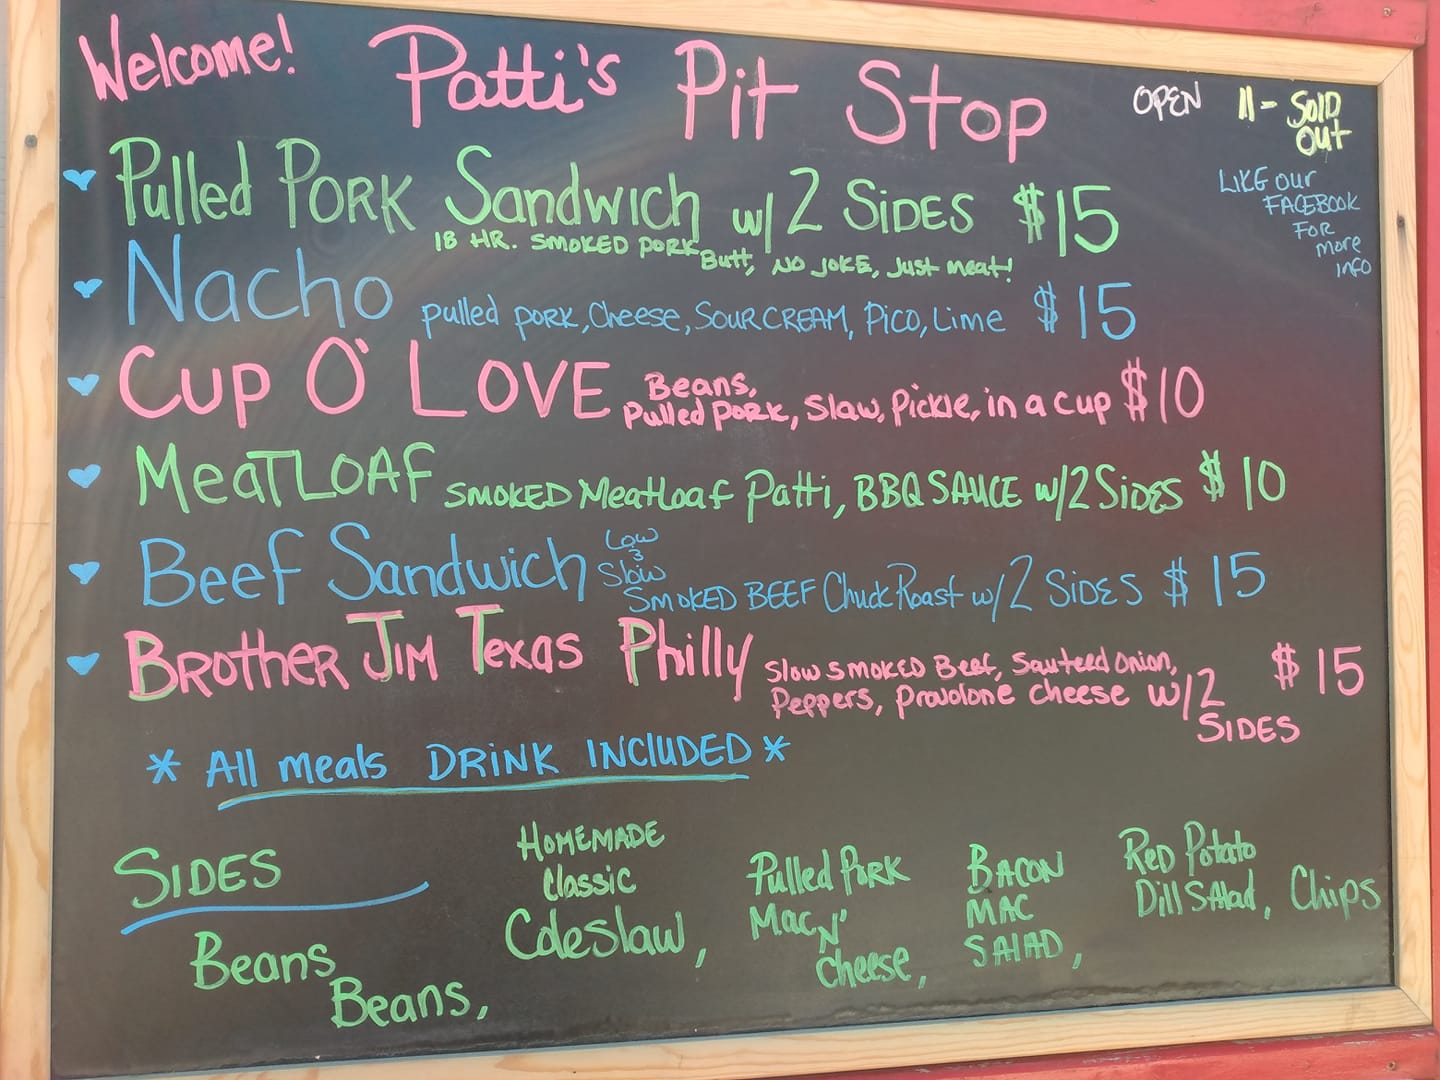 Welcome! Patti's Pit Stop
OPEN 11 - SOLD OUT
LIKE our
FACEBOOK
FOR
more
info
Pulled PORK Sandwich w/ 2 SIDES $15
18 HR. SMOKED PORK Butt, NO JOKE, Just meat!
Nacho pulled pork, Cheese, SOUR CREAM, Pico, Lime $15
Cup O' LOVE Beans,
Pulled Pork, Slaw, Pickle, in a cup $10
MeaTLOAF SMOKED Meatloaf Patti, BBQ SAUCE w/ 2 SIDES $10
Beef Sandwich Low
&
Slow
SMOKED BEEF Chuck Roast w/ 2 SIDES $15
BROTHER JIM Texas Philly Slow SMOKED Beef, Sauteed onion,
Peppers, Provolone cheese w/ 2
SIDES
$15
* All meals DRINK INCLUDED *
SIDES
Beans
Beans,
HOMEMADE
Classic
Coleslaw,
Pulled PORK
Mac N'
Cheese,
BACON
MAC
SALAD,
RED Potato
Dill SALAD,
Chips